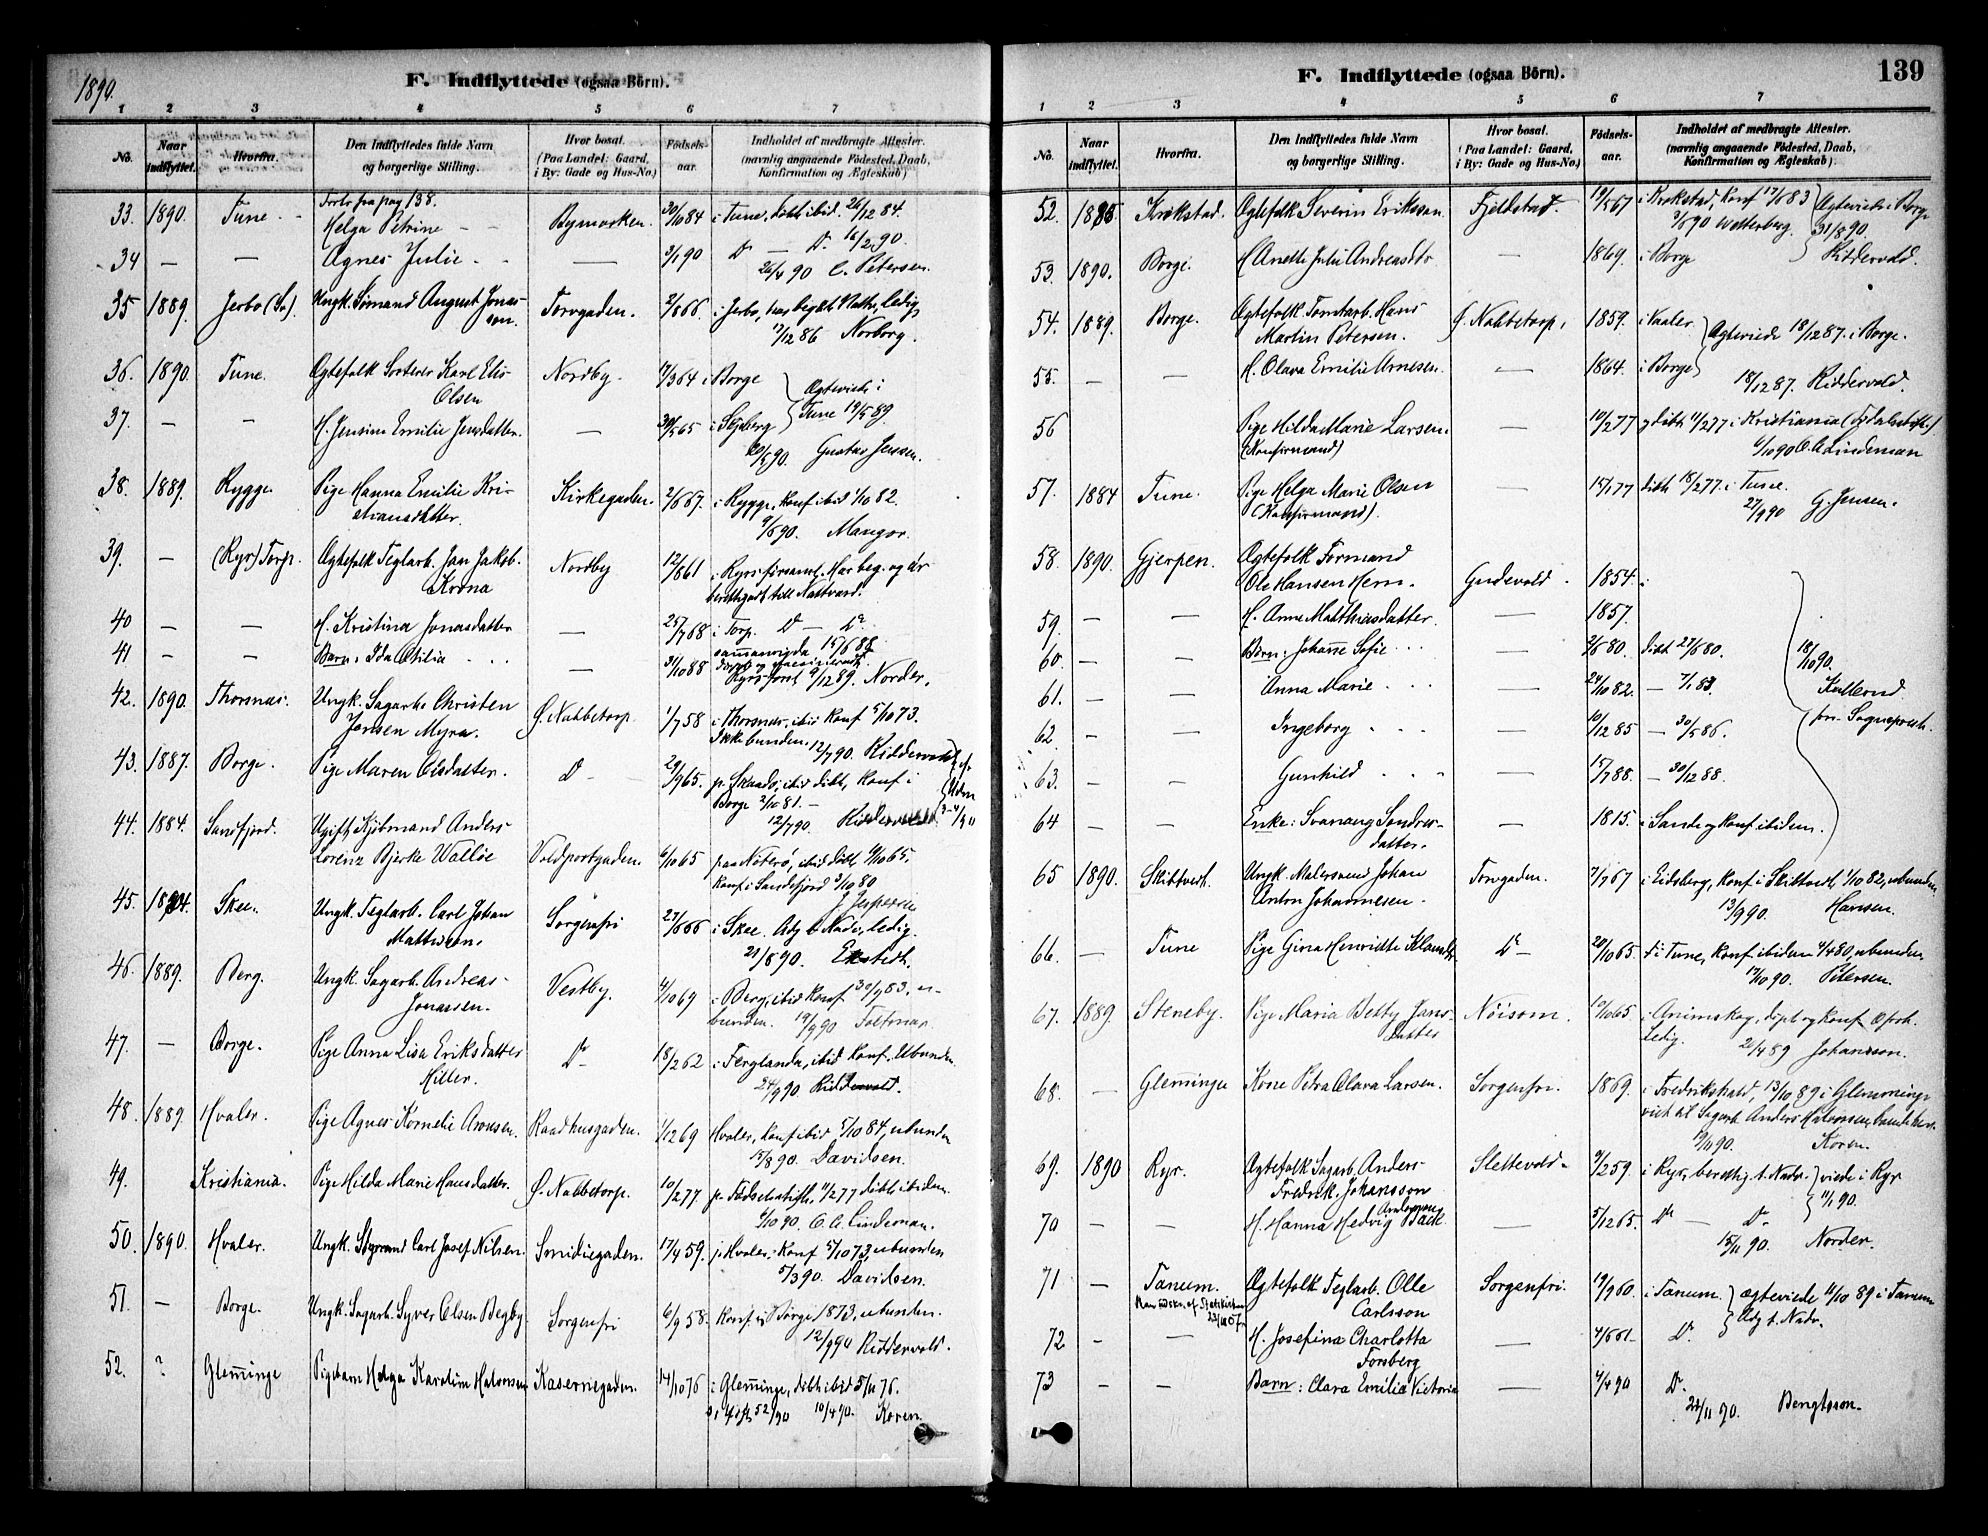 1890.
F. Indflyttede (ogsaa Börn).
1 2 3 4 5 6 7
No.
Naar indflyttet.
Hvorfra.
Den Indflyttedes fulde Navn
og borgerlige Stilling.
Hvor bosat.
(Paa Landet: Gaard,
i By: Gade og Hus-No.)
Födsels-
aar.
Indholdet af medbragte Attester.
(navnlig angaaende Födested, Daab,
Konfirmation og Ægteskab)
Forts fra pag 138.
33. 1890. Tune. Helga Petrine Bymarken. 30/10 84 i Tune, döbt ibid. 26/12 84.
34 — — Agnes Julie — 3/1 90 Do — Do 16/2 90.
26/4 90 C. Petersen.
35 1889. Jerbo (Sv). Ungk. Sömand August Jonas-
son. Torvgaden. 2/8 66 i Jerbo, har begått Nattv, ledig
17/12 86 Norborg.
36. 1890. Tune. Ægtefolk Sorterer Karl Elis
Olsen Nordby. 17/3 64 i Borge
Ægteviede i
Tune 19/5 89.
37. — — H. Jensine Emilie Jensdatter. — 30/5 65 i Skjeberg
20/5 90. Gustav Jensen.
38. 1889. Rygge. Pige Hanna Emilie Kri-
stiansdatter. Kirkegaden. 2/6 67. i Rygge, Konf ibid 1/10 82.
9/6 90. Mangor.
39. — (Ryr) Torp. Ægtefolk Teglarb. Jan Jakob.
Krona Nordby 12/8 61 i Ryrs församl. Har beg. og är
berettigadt till Nattvard.
40 — — H. Kristina Jonasdatter — 25/7 68 i Torp. Do — Do
sammanvigda 15/6 88
41 — — Barn: Ida Otilia — 31/10 88
Ryrs förs. 9/12 89. Norder.
42. 1890. Thorsnæs. Ungk. Sagarb. Christen
Jensen Myra. Ø. Nabbetorp. 1/7 58 i Thorsnæs, ibid Konf 5/10 73.
Ikke bunden. 12/7 90. Riddervold
43. 1887. Borge. Pige Maren Olsdatter. Do 29/9 65. p. Skaadö, ibid döbt, Konf i
Borge 2/10 81. —
12/7 90. Riddervold.
44. 1884. Sandfjord. Ugift Kjöbmand Anders
Lorenz Bjerke Wallöe Voldportgaden. 6/10 65 paa Nöterö, ibid Döbt 6/10 65.
Konf i Sandefjord 3/10 80
J. Jespersen
45. 1884. Skee. Ungk. Teglarb. Carl Johan
Mattisson. Sorgenfri 27/6 66 i Skee. Adg t. Nadv, ledig.
21/8 90. Ekstedt.
46. 1889. Berg. Ungk. Sagarb. Andreas
Jonassen. Vestby. 4/10 69 i Berg, ibid Konf 30/9 83. u-
bunden. 19/9 90
47. — Borge. Pige Anna Lisa Eriksdatter
Hiller. Do 18/2 62 i Ferglanda, ibid Konf, Ubunden.
24/9 90. Riddervold.
48. 1889. Hvaler. Pige Agnes Kornelie Arnesen. Raadhusgaden. 1/12 69 Hvaler, Konf ibid 5/10 84, ubunden
15/8 90. Davidsen.
49. Kristiania. Pige Hilda Marie Hansdatter. Ø. Nabbetorp. 10/2 77 p. Födselsstift, 11/2 77 döbt ibidem.
6/10 90. C. C. Lindeman.
50. 1890. Hvaler. Ungk. Styrmand Carl Josef Nilsen. Smidiegaden. 17/4 59. p. Hvaler. Konf 5/10 73, ubunden
5/3 90. Davidsen.
51. — Borge. Ungk. Sagarb. Syver Olsen Begby. Sorgenfri 6/9 58. Konf i Borge 1873, ubunden.
12/9 90 Riddervold.
52. ? Glemminge Pigebarn Helga Karoline Halvorsen Kasernegaden. 14/10 76 i Glemminge, döbt ibid 5/11 76.
52/90 10/4 90. Koren.
F. Indflyttede (ogsaa Börn). 139
1 2 3 4 5 6 7
No.
Naar indflyttet.
Hvorfra.
Den Indflyttedes fulde Navn
og borgerlige Stilling.
Hvor bosat.
(Paa Landet: Gaard,
i By: Gade og Hus-No.)
Födsels-
aar.
Indholdet af medbragte Attester.
(navnlig angaaende Födested, Daab,
Konfirmation og Ægteskab).
52. 1885 Krokstad. Ægtefolk Severin Eriksson. Fjeldstad. 19/5 67 i Krokstad, Konf 17/6 83
3/6 90 Wetterberg.
Ægteviede i Borge
31/8 90.
Riddervold.
53. 1890. Borge. H Anette Julie Andreasdtr. — 1869. i Borge
54. 1889. Borge. Ægtefolk Tomtarb. Hans
Martin Petersen. Ø. Nabbetorp. 1859. i Vaaler.
Ægteviede 18/12 87. i Borge.
55. — — H. Olava Emilie Arnesen. — 1864. i Borge
18/12 87. Riddervold.
56 Pige Hilda Marie Larsen. — 10/2 77 og döbt 11/2 77 i Kristiania (Födselsstift.)
(Konfirmand) 6/10 90 C. C. Lindeman
57. 1884 Tune. Pige Helga Marie Olsen — 15/1 77 döbt 18/2 77. i Tune.
(Konfirmand). 27/9 90 G. Jensen.
58. 1890. Gjerpen. Ægtefolk Formand
Ole Hansen Hem. Gudevold. 1854. i
59. — — H. Anne Matthiasdatter. — 1857.
60. — — Börn: Johanne Sofie — 2/6 80. döbt 27/6 80.
18/10 90.
61. — — Anna Marie 24/10 82. — 7/1 83.
Kallerud
62 — — Ingeborg 10/12 85 — 30/5 86.
pn. Sognepræst.
63. — — Gunhild 15/7 88. — 30/12 88.
64 — — Enke: Svanaug Sondres-
datter. — 1815. i Sande og Konf ibidem.
65 1890. Skibtvedt. Ungk. Malersvend Johan
Anton Johannesen. Torvgaden. 7/7 67 i Eidsberg, Konf i Skibtvedt 1/10 82, ubunden
13/9 90. Hansen.
66. — Tune Pige Gina Henriette Klausdtr Do 20/10 65. i Tune, Konf ibidem 4/4 80, ubunden.
17/10 90. Petersen.
67. 1889. Steneby. Pige Maria Betty Jans-
datter Nöisom. 10/10 65. i Animskog, döpt og Konf
Ledig. 2/4 89 Johansson.
68. — Glemminge Kone Petra Olava Larsen. Sorgenfri. 1869. i Fredrikshald, 13/10 89 i Glemminge
viet til Sagarb. Anders Halvorsen,
19/10 90. Koren.
69. 1890 Ryr. Ægtefolk Sagarb. Anders
Fredrik Johansson Slettevold. 9/2 59. i Ryr, berettig t. Nadv.
viede i Ryr
11/1 90.
70 — — H. Hanna Hedvig Andersson Bäck. — 5/12 65. Do — Do
15/11 90. Norder.
71 — Tanum. Ægtefolk Teglarb. Olle
Carlsson Sorgenfri. 19/9 60. i Tanum.
Ægteviede 11/10 89 i Tanum
Adg t. Nadv.
72 — — H. Josefina Charlotta
Forsberg 4/6 61 Do.
73 — — Barn: Clara Emilia Victoria — 4/4 90 Do.
24/11 90. Bengtsson.